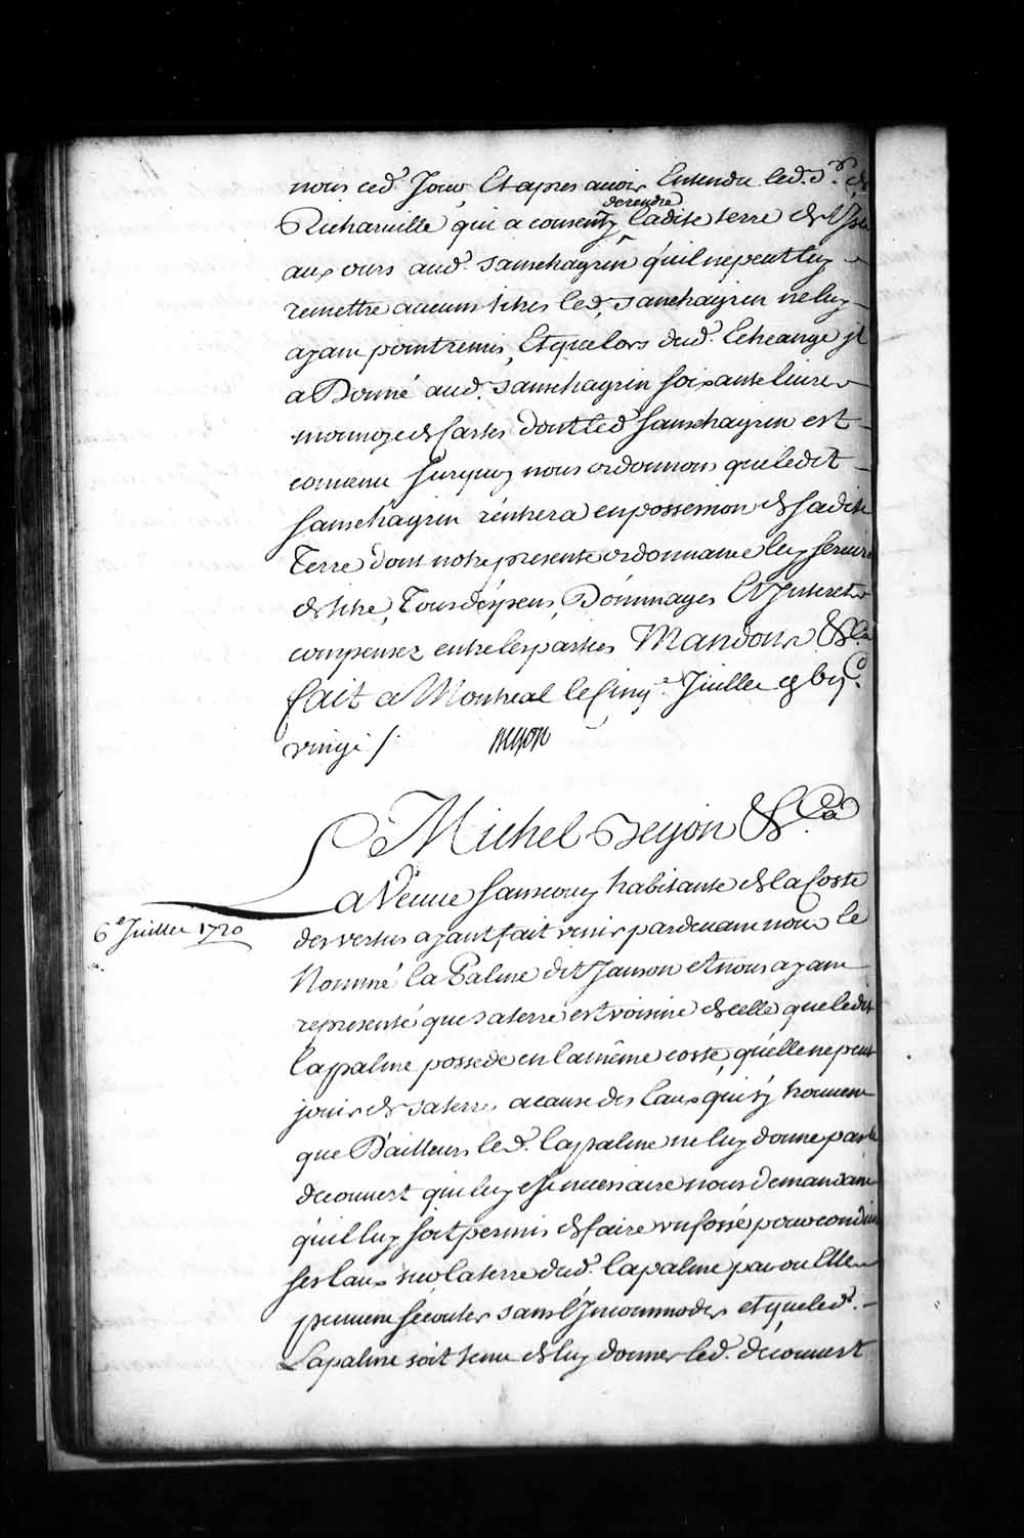 nous ced. Jour, Et apres avoir Entendu led. Sr. de
Richarville qui a consenty de rendre ladite terre de l'Isle
aux ours aud. Sanschagrin qu'il ne peut luy
remettre aucuns titres led. Sanschagrin ne luy
ayant point remis, Et que lors dud. Echeange jl
a Donné aud. Sanschagrin soixante livres
monnoye de Cartes dont led. Sanschagrin est
convenu surquoy nous ordonnons que ledit
Sanschagrin rentrera en possession de sadite
Terre dont notre presente ordonnance luy servira
de titre, Tous dépens, Dommages Et Interets
compensez entre les parties Mandons &c.a
fait a Montreal le Cinqe. Juillet
vingt /. Begon
Michel Begon &c.a
6e Juillet 1720
La Veuve Sansoucy habitante de la Coste
des vertus ayant fait venir pardevant nous le
Nommé la Palme dit Janson et nous ayant
representé que sa terre est voisine de celle que ledit
Lapalme possede en la même coste, qu'elle ne peut
jouir de sa terre acause des Eaux qui s'y trouvent
que D'ailleurs led. Lapalme ne luy donne pas le
decouvert qui luy est necessaire nous demandant
qu'il luy soit permis de faire un fossé pour conduire
ses Eaux sur la terre dud. Lapalme par ou Elles
peuvent s'ecouler sans l'Incommoder et que led.
Lapalme soit tenu de luy donner led. decouvert